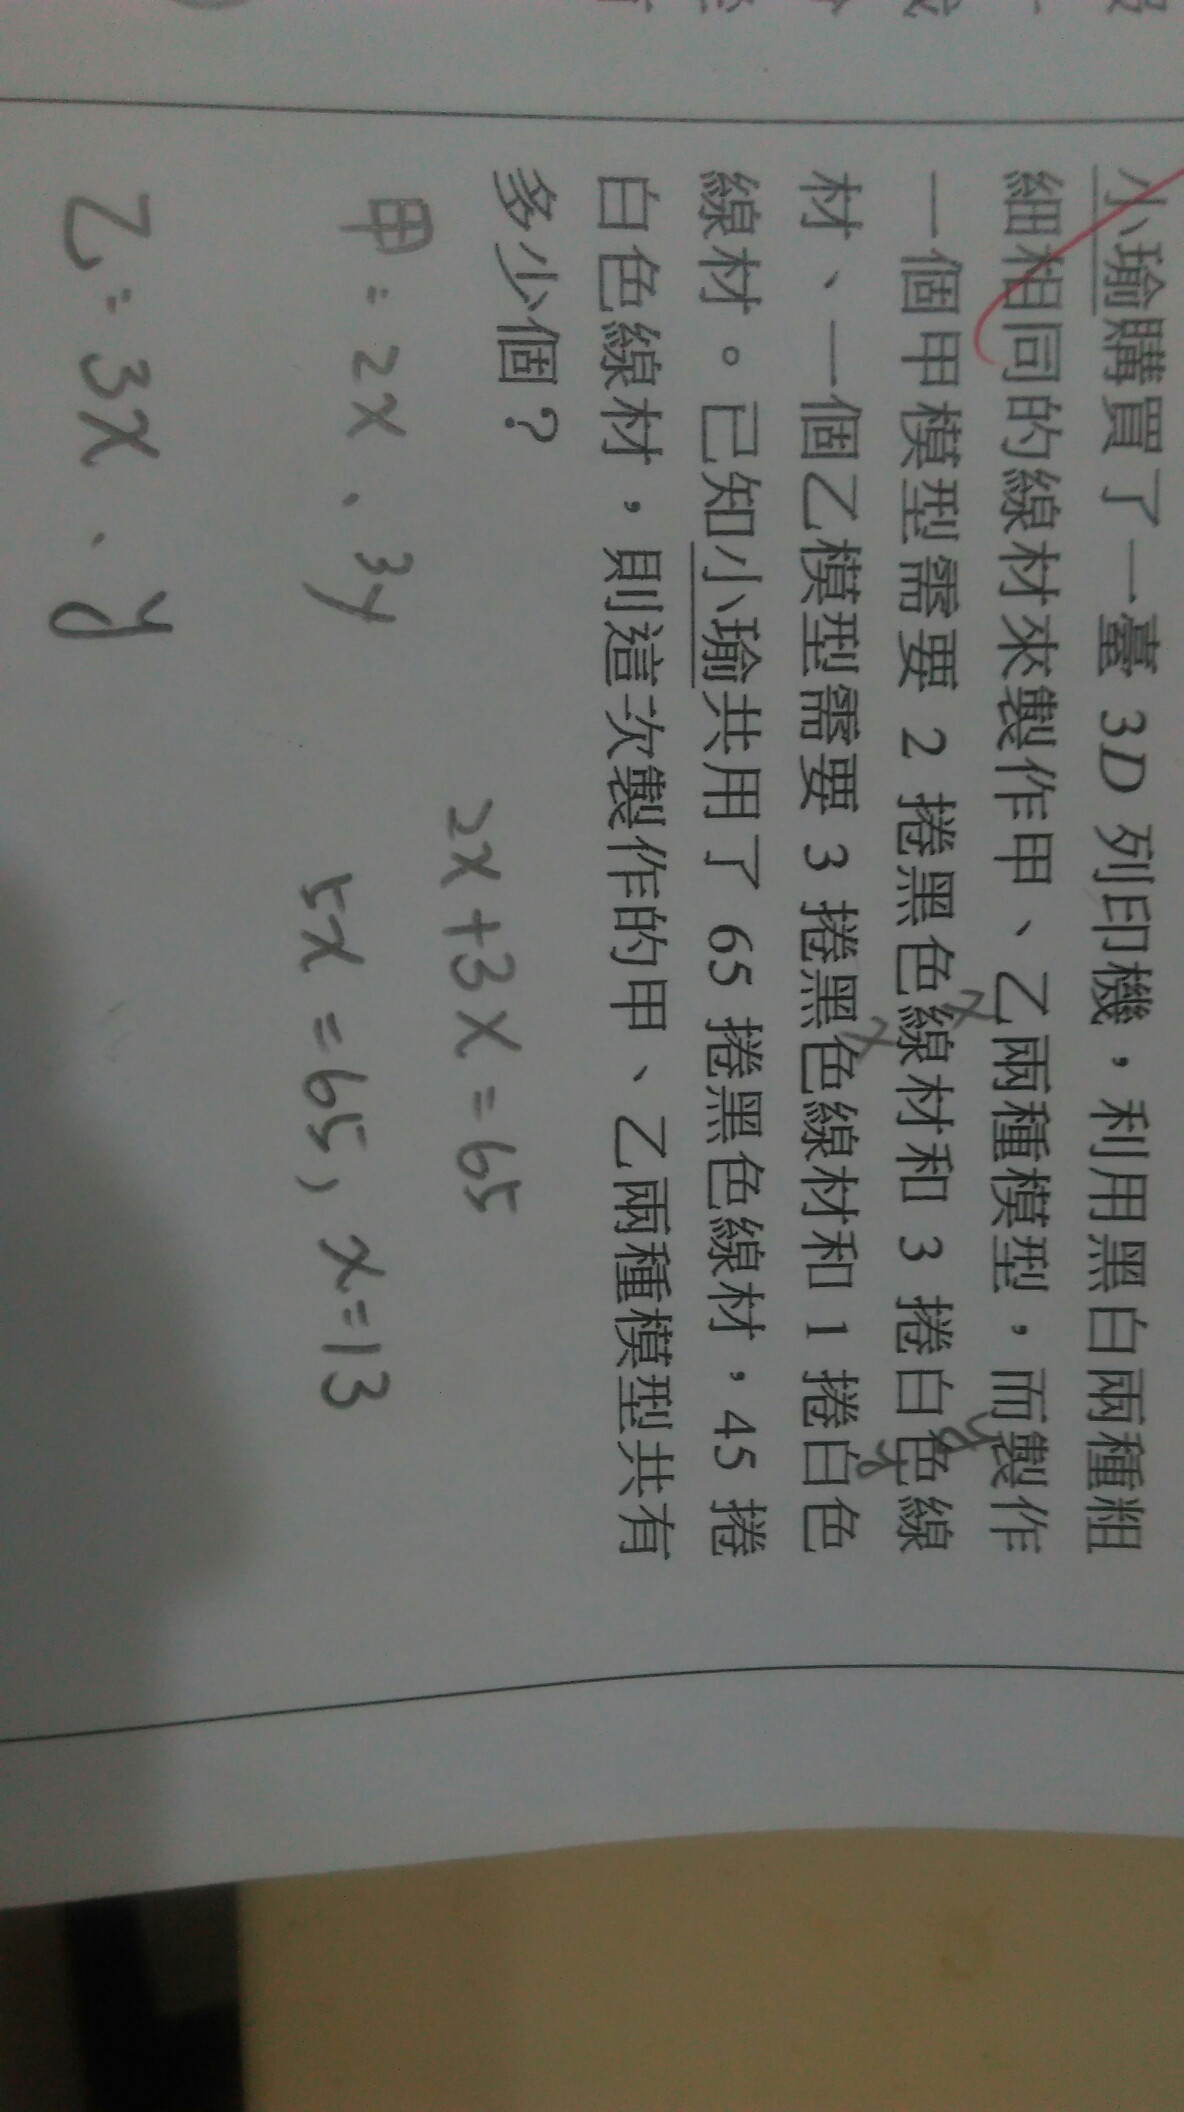 小瑜購買了一臺 3D 列印機，利用黑白兩種粗
細相同的線材來製作甲、乙兩種模型，而製作
一個甲模型需要 2 捲黑色線材和 3 捲白色線
材、一個乙模型需要 3 捲黑色線材和 1 捲白色
線材。已知小瑜共用了 65 捲黑色線材，45 捲
白色線材，則這次製作的甲、乙兩種模型共有
多少個？
x
x
y
y
2x+3x=65
甲：2x、3y
5x=65, x=13
乙：3x、y